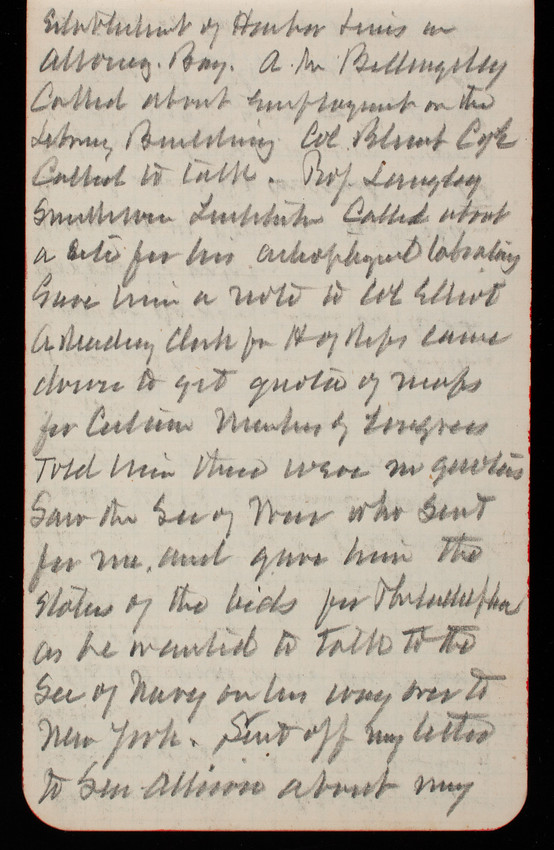 Establishment of Harbor Lines in
Bay. A. M Billingsley
Called about employment on the
Library Building Col Blunt
Called to talk. Prof Langley
Smithsonian Institute Called about
a site for his astrophysical labratory
Gave him a note to Col Elliot
A Reading Clerk for H of Reps came
down to get quota of maps
for Certain Members of Congress
Told him there were no quotas
Saw the Sec of War who sent
for me, and gave him the
status of the bids for Philadelphia
as he wanted to talk to the
Sec of Navy on his way over to
New York. Sent off my letter
to Sen Allison about my